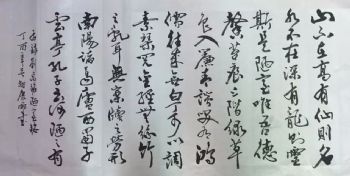 山不在高有仙則名
水不在深有龍則靈
斯是陋室唯吾德
馨苔痕上階綠草
色入簾青談笑有鴻
儒往來無白丁可以調
素琴閱金經無絲竹
之亂耳無案牘之勞形
南陽諸葛廬西蜀子
雲亭孔子云何陋之有